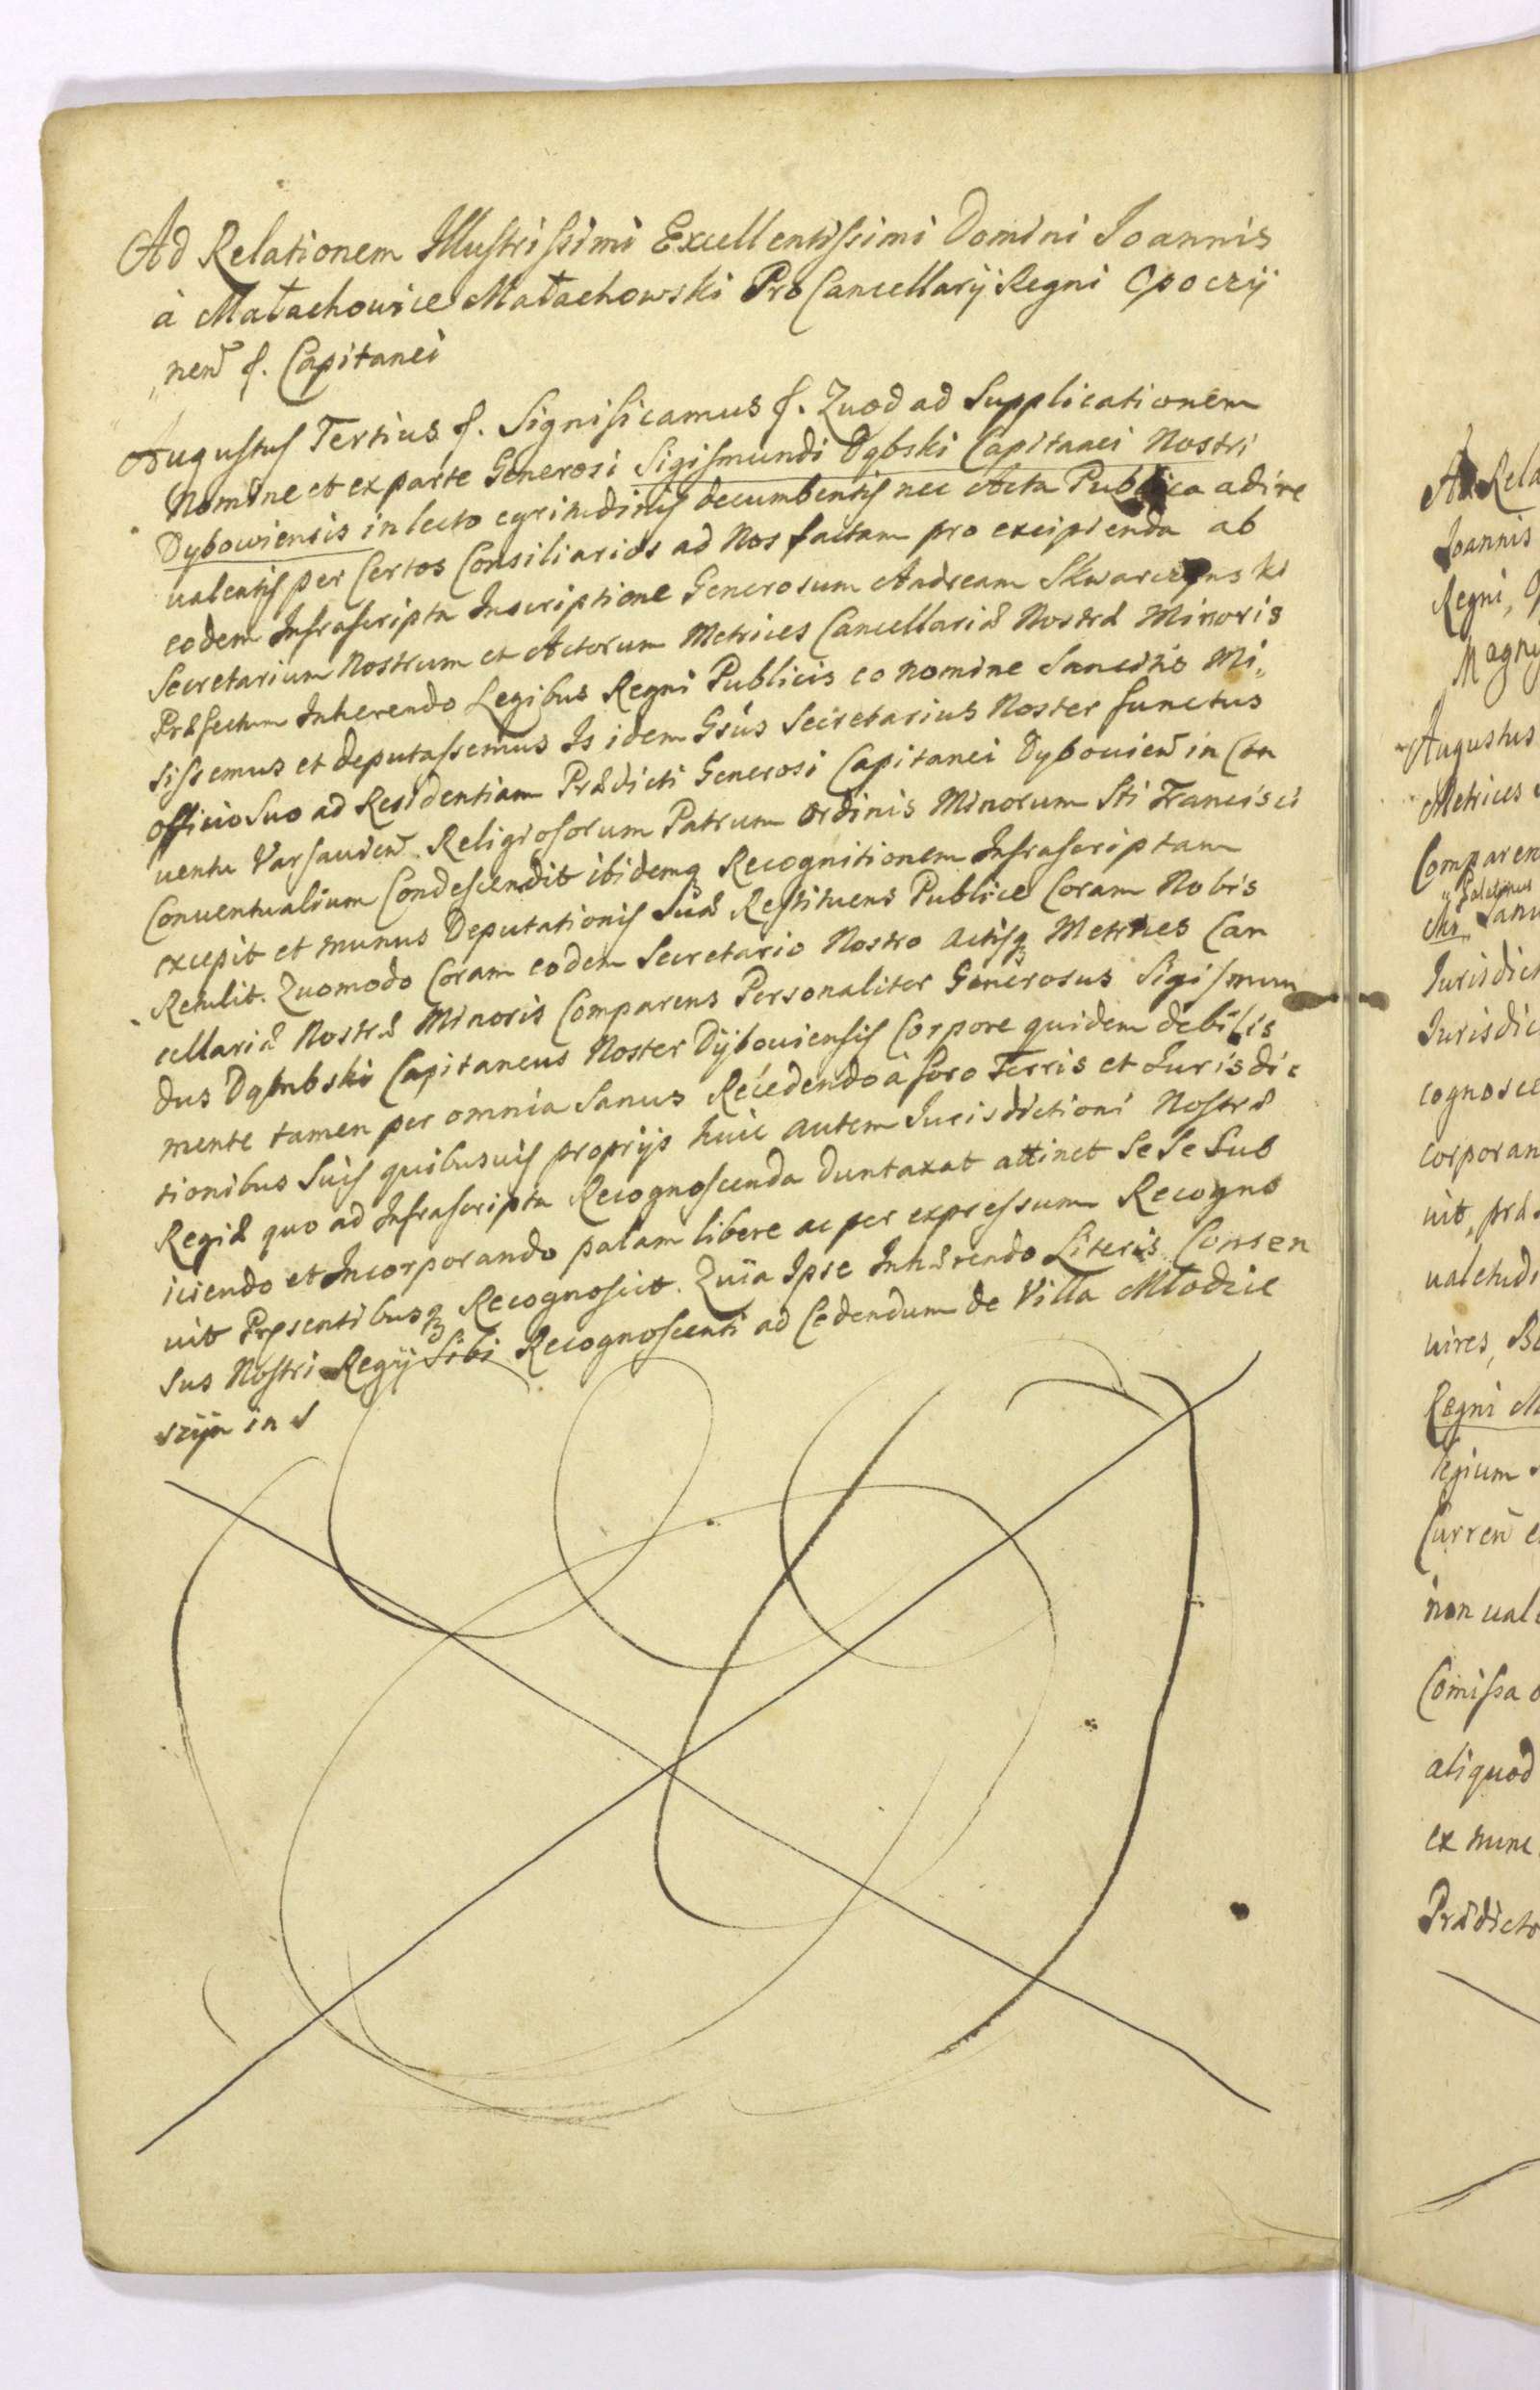 Ad Relationem Illustrissimi Excellentissimi Domini Joannis
à Małachowice Małachowski Pro Cancellarij Regni Opoczij
nen̄ f. Capitanei
Augustus Tertius f. Significamus f. Quod ad Supplicationem
Nomine et ex parte Generosi Sigismundi Dąbski Capitanei Nostri
Dybowiensis in lecto egritudinis decumbentis nec Acta Publica adire
valentis per Certos Consiliarios ad Nos factam pro excipienda ab
eodem Infrascripta Inscriptione Generosum Andream Skwarczynski
Secretarium Nostrum et Actorum Metrices Cancellariæ Nostræ Minoris
Præfectum Inherendo Legibus Regni Publicis eo nomine Sancitis Mi
sissemus et deputassemus Is idem Gsus Secretarius Noster functus
officio Suo ad Residentiam Prædicti Generosi Capitanei Dybovien̄ in Con
ventu Varsavien̄ Religiosorum Patrum Ordinis Minorum Sti Francisci
Conventualium Condescendit ibidemq Recognitionem Infrascriptam
excepit et munus Deputationis Suæ Restituens Publice Coram Nobis
Retulit. Quomodo Coram eodem Secretario Nostro Actisq Metrices Can
cellariæ Nostræ Minoris Comparens Personaliter Generosus Sigismun
dus Dąmbski Capitaneus Noster Dijboviensis Corpore quidem debilis
mente tamen per omnia Sanus Recedendo à foro Terris et Jurisdic
tionibus Suis quibusvis proprijs huic autem Jurisdictioni Nostræ
Regiæ quo ad Infrascripta Recognoscenda duntaxat attinet Se Se Sub
iiciendo et Incorporando palam libere ac per expressum Recogno
vit Præsentibusq Recognoscit. Quia Ipse Inhærendo Literis Consen
sus Nostri Regij Sibi Recognoscenti ad Cedendum de Villa Młodzie
szyn in S
Ad Rela
Joannis
Regni,
Magny
Augustus
Metrices
Comparen
Jurisdict
Jurisdic
cognosce
corporan
vit, præ
valetudi
vires,
Regni
legium
Curren̄
non vale
Comissa
aliquod
ex nunc
Prædicto